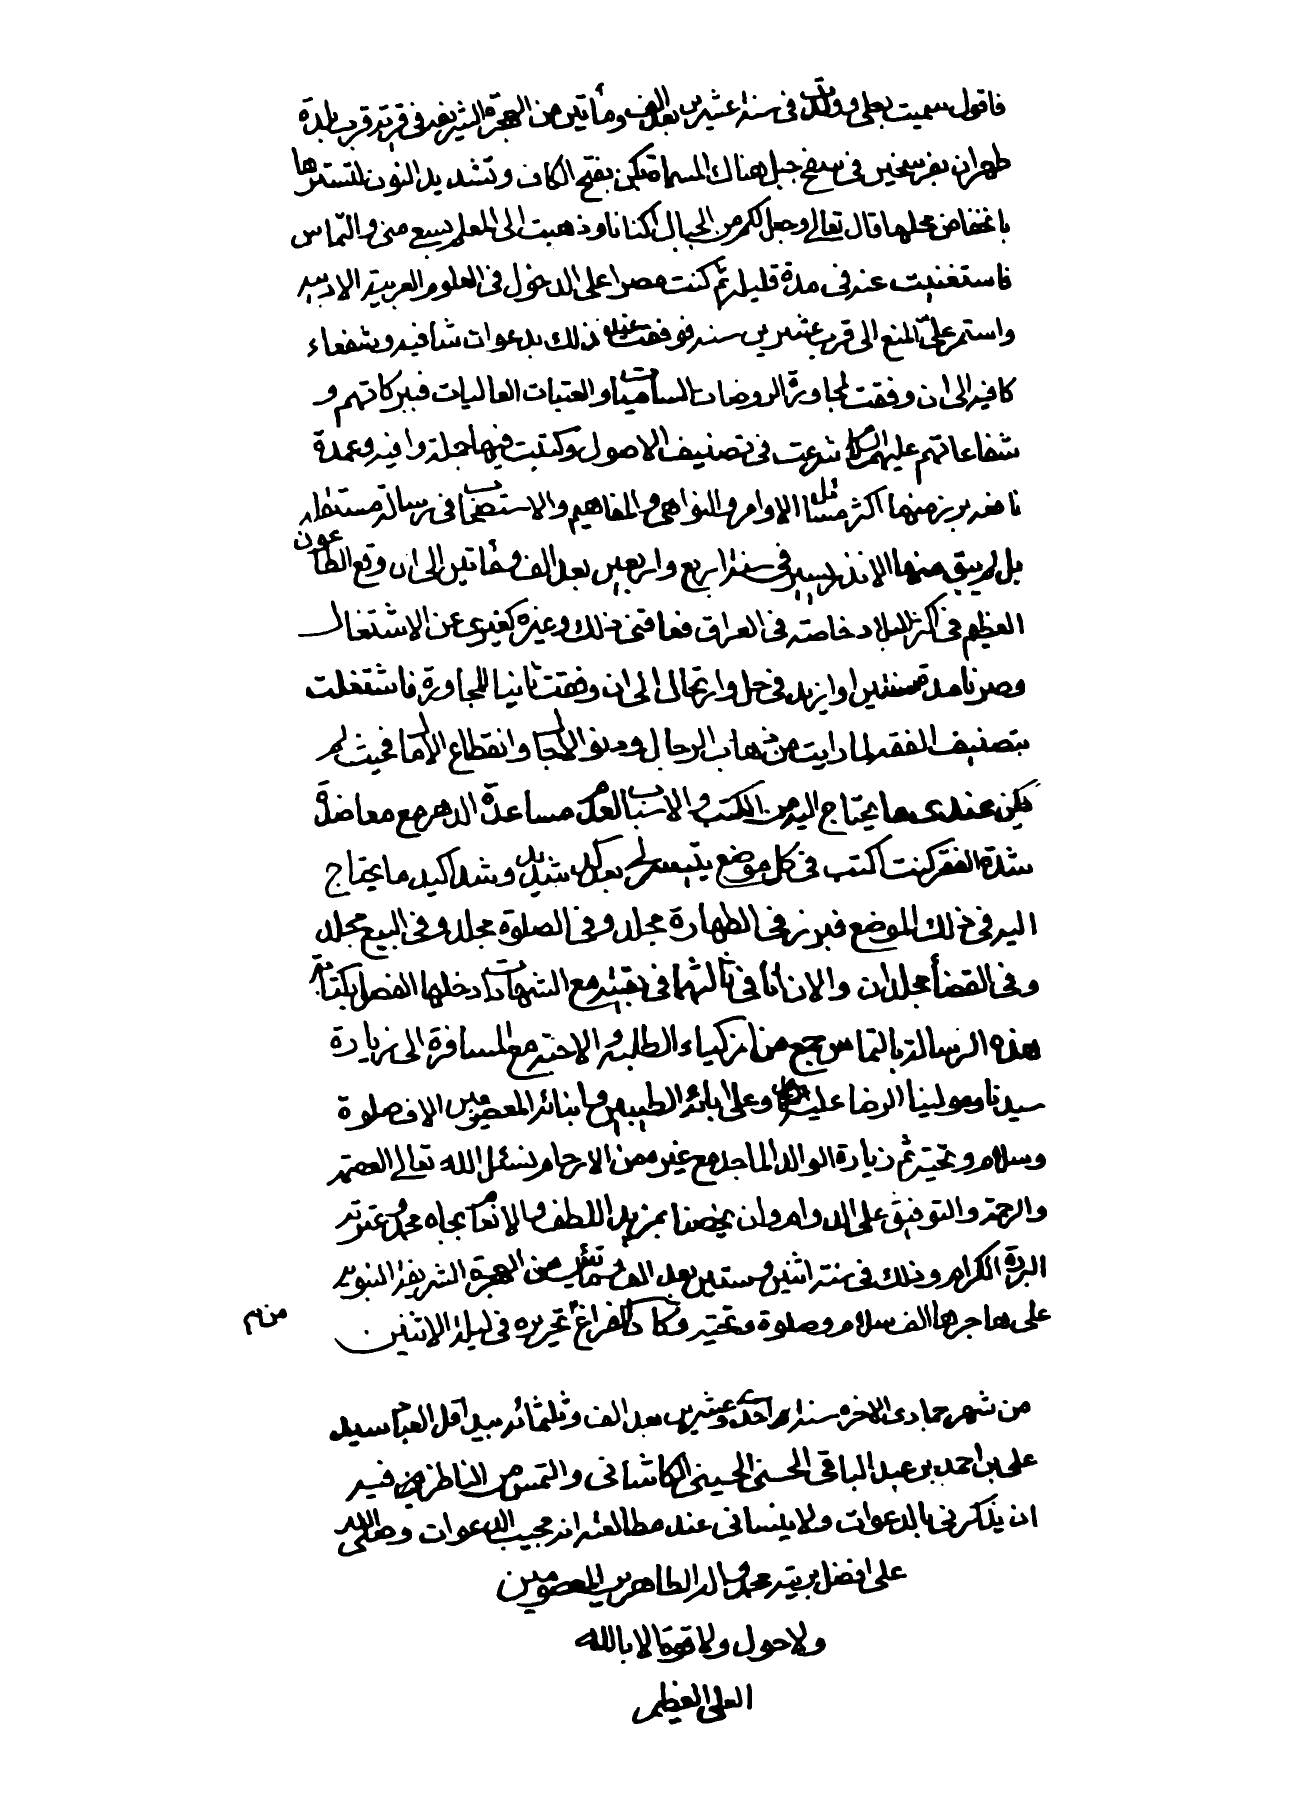 فاقول سميت بعلى وولدت فى سنة عشرين بعد الف ومأتين من الهجرة الشريفه فى قرية قرب بلدة
طهران بفرسخين فى سفح جبل هناك المسماة بكن بفتح الكاف وتشديد النون لتسترها
بانخفاض محلها قال تعالى وجعل لكم من الجبال اكنانا وذهبت الى المعلم بسبع منى والتماس
فاستغنيت عنه فى مدة قليلة ثم كنت مصرا على الدخول فى العلوم العربية الادبية
واستمر على المنع الى قرب عشرين سنه فوفقت عند ذلك بدعوات شافيه وشفعاء
كافيه الى ان وفقت لمجاورة الروضات الساميات والعتبات العاليات فببركاتهم و
شفاعاتهم عليهم السلام شرعت فى تصنيف الاصول وكتبت فيها جملة وافيه وعمدة
نافعه برز منها اكثر مسائل الاوامر والنواهى والمفاهيم والاستصحاب فى رسالة مستقلة
بل لم يبق منها الا نذر يسير فى سنة اربع واربعين بعد الف ومأتين الى ان وقع الطاعون
العظيم فى اكثر البلاد خاصته فى العراق فعاقنى ذلك وغيره كغيرى عن الاشتغال
وصرنا مدة سنتين او ازيد فى حل وارتحال الى ان وفقت ثانيا للمجاورة فاشتغلت
بتصنيف الفقه لما رايت من ذهاب الرجال ودنو الاجال وانقطاع الامال فحيث لم
يكن عندى ما يحتاج اليه من الكتب والاسباب لعدم مساعدة الدهر مع معاضدة
شدة الفقر كنت اكتب فى كل موضع يتيسر لى بعد كد شديد وشد اكيد ما يحتاج
اليه فى ذلك الموضع فبرز فى الطهارة مجلد وفى الصلوة مجلد وفى البيع مجلد
وفى القضأ مجلدان والان انا فى ثالثهما فى بقيته مع الشهادات ادخلها الفصل بكتابة
هذه الرسالة بالتماس جمع من ازكياء الطلبه والاحته مع المسافرة الى زيارة
سيدنا ومولينا الرضا عليه السلام وعلى ابائه الطيبين وابنائه المعصومين الاف صلوة
وسلام وتحية ثم زيارة الوالد الماجد مع غيره من الارحام نسئل الله تعالى العصمة
والرحمة والتوفيق على الدوام وان يخصنا بمزيد اللطف والانعام بجاه محمد وعترته
البررة الكرام وذلك فى سنة اثنين وستين بعد الف ومأتين من الهجرة الشريفة النبويه
على هاجرها الف سلام وصلوة وتحيته وكان الفراغ تحريره فى ليلة الاثنين
من شهر جمادى الاخره سنة احدى وعشرين بعد الف وثلثمائه بيد اقل العباد سيد
على بن احمد بن عبد الباقى الحسنى الحسينى الكاشانى والتمس من الناظرين فيه
ان يذكرنى بالدعوات ولا ينسانى عند مطالعته انه مجيب الدعوات وصلى الله
على افضل بريته محمد واله الطاهرين المعصومين
ولا حول ولا قوة الا بالله
العلى العظيم